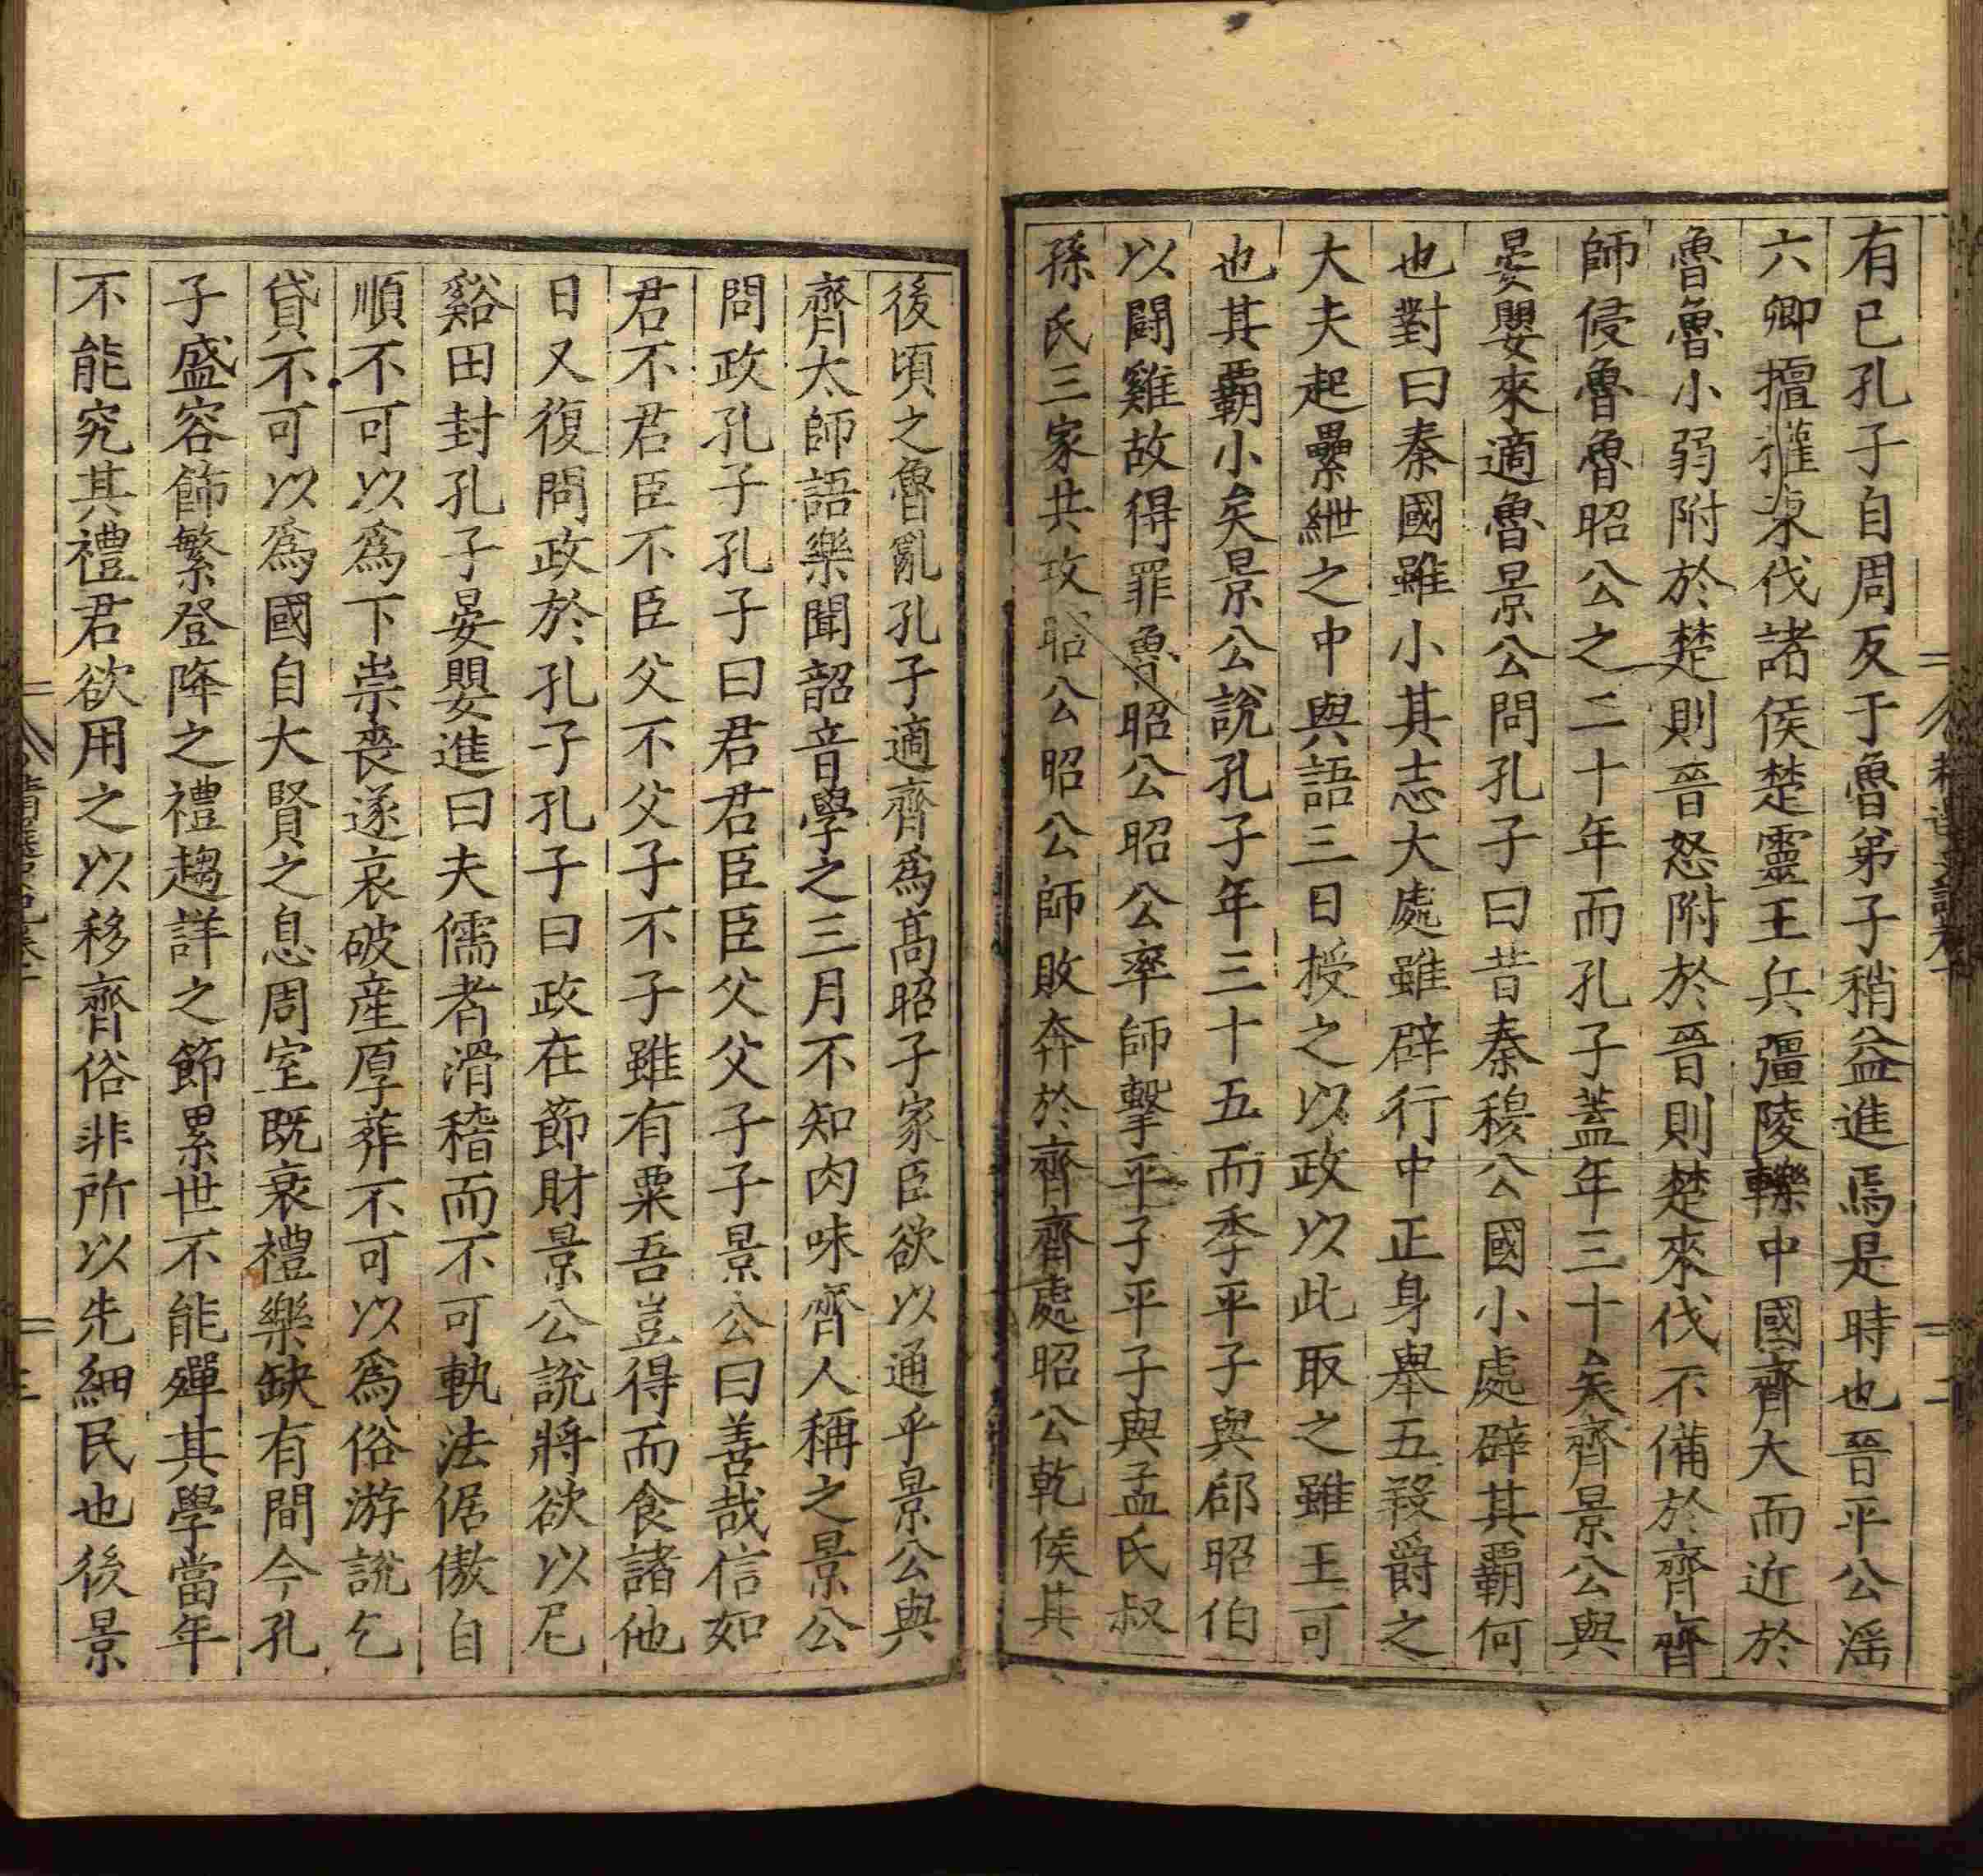 有已孔子自周反于魯弟子稍益進焉是時也晉平公滛
六卿擅權東伐諸侯楚靈王兵彊陵轢中國齊大而近於
魯魯小弱附於楚則晉怒附於晉則楚來伐不備於齊齊
師侵魯魯昭公之二十年而孔子蓋年三十矣齊景公與
晏嬰來適魯景公問孔子曰昔秦穆公國小處辟其霸何
也對曰秦國雖小其志大處雖辟行中正身舉五羖爵之
大夫起纍紲之中與語三日授之以政以此取之雖王可
也其霸小矣景公說孔子年三十五而季平子與郈昭伯
以鬪雞故得罪魯昭公昭公率師擊平子平子與孟氏叔
孫氏三家共攻昭公昭公師敗奔於齊齊處昭公乾侯其
後頃之魯亂孔子適齊爲高昭子家臣欲以通乎景公與
齊太師語樂聞韶音學之三月不知肉味齊人稱之景公
問政孔子孔子曰君君臣臣父父子子景公曰善哉信如
君不君臣不臣父不父子不子雖有粟吾豈得而食諸他
日又復問政於孔子孔子曰政在節財景公說將欲以尼
谿田封孔子晏嬰進曰夫儒者滑稽而不可執法倨傲自
順不可以爲下崇喪遂哀破產厚葬不可以爲俗游說乞
貸不可以爲國自大賢之息周室既衰禮樂缺有間今孔
子盛容飾繁登降之禮趨詳之節累世不能殫其學當年
不能究其禮君欲用之以移齊俗非所以先細民也後景